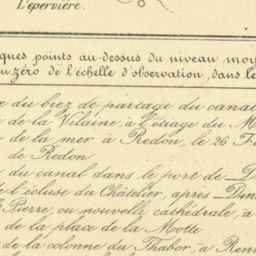 L'épervière.
ques points au-dessus du niveau moy
u zéro de l'échelle d'observation, dans le
du biez de partage du canal
de la Vilaine, à l'étiage du M
de la mer à Redon, le 26 F
de Redon
du canal dans le port de D
l'écluse du Châtelier, après Din
Pierre, ou nouvelle cathédrale, à
de la place de la Motte
de la colonne du Thabor, à Renn